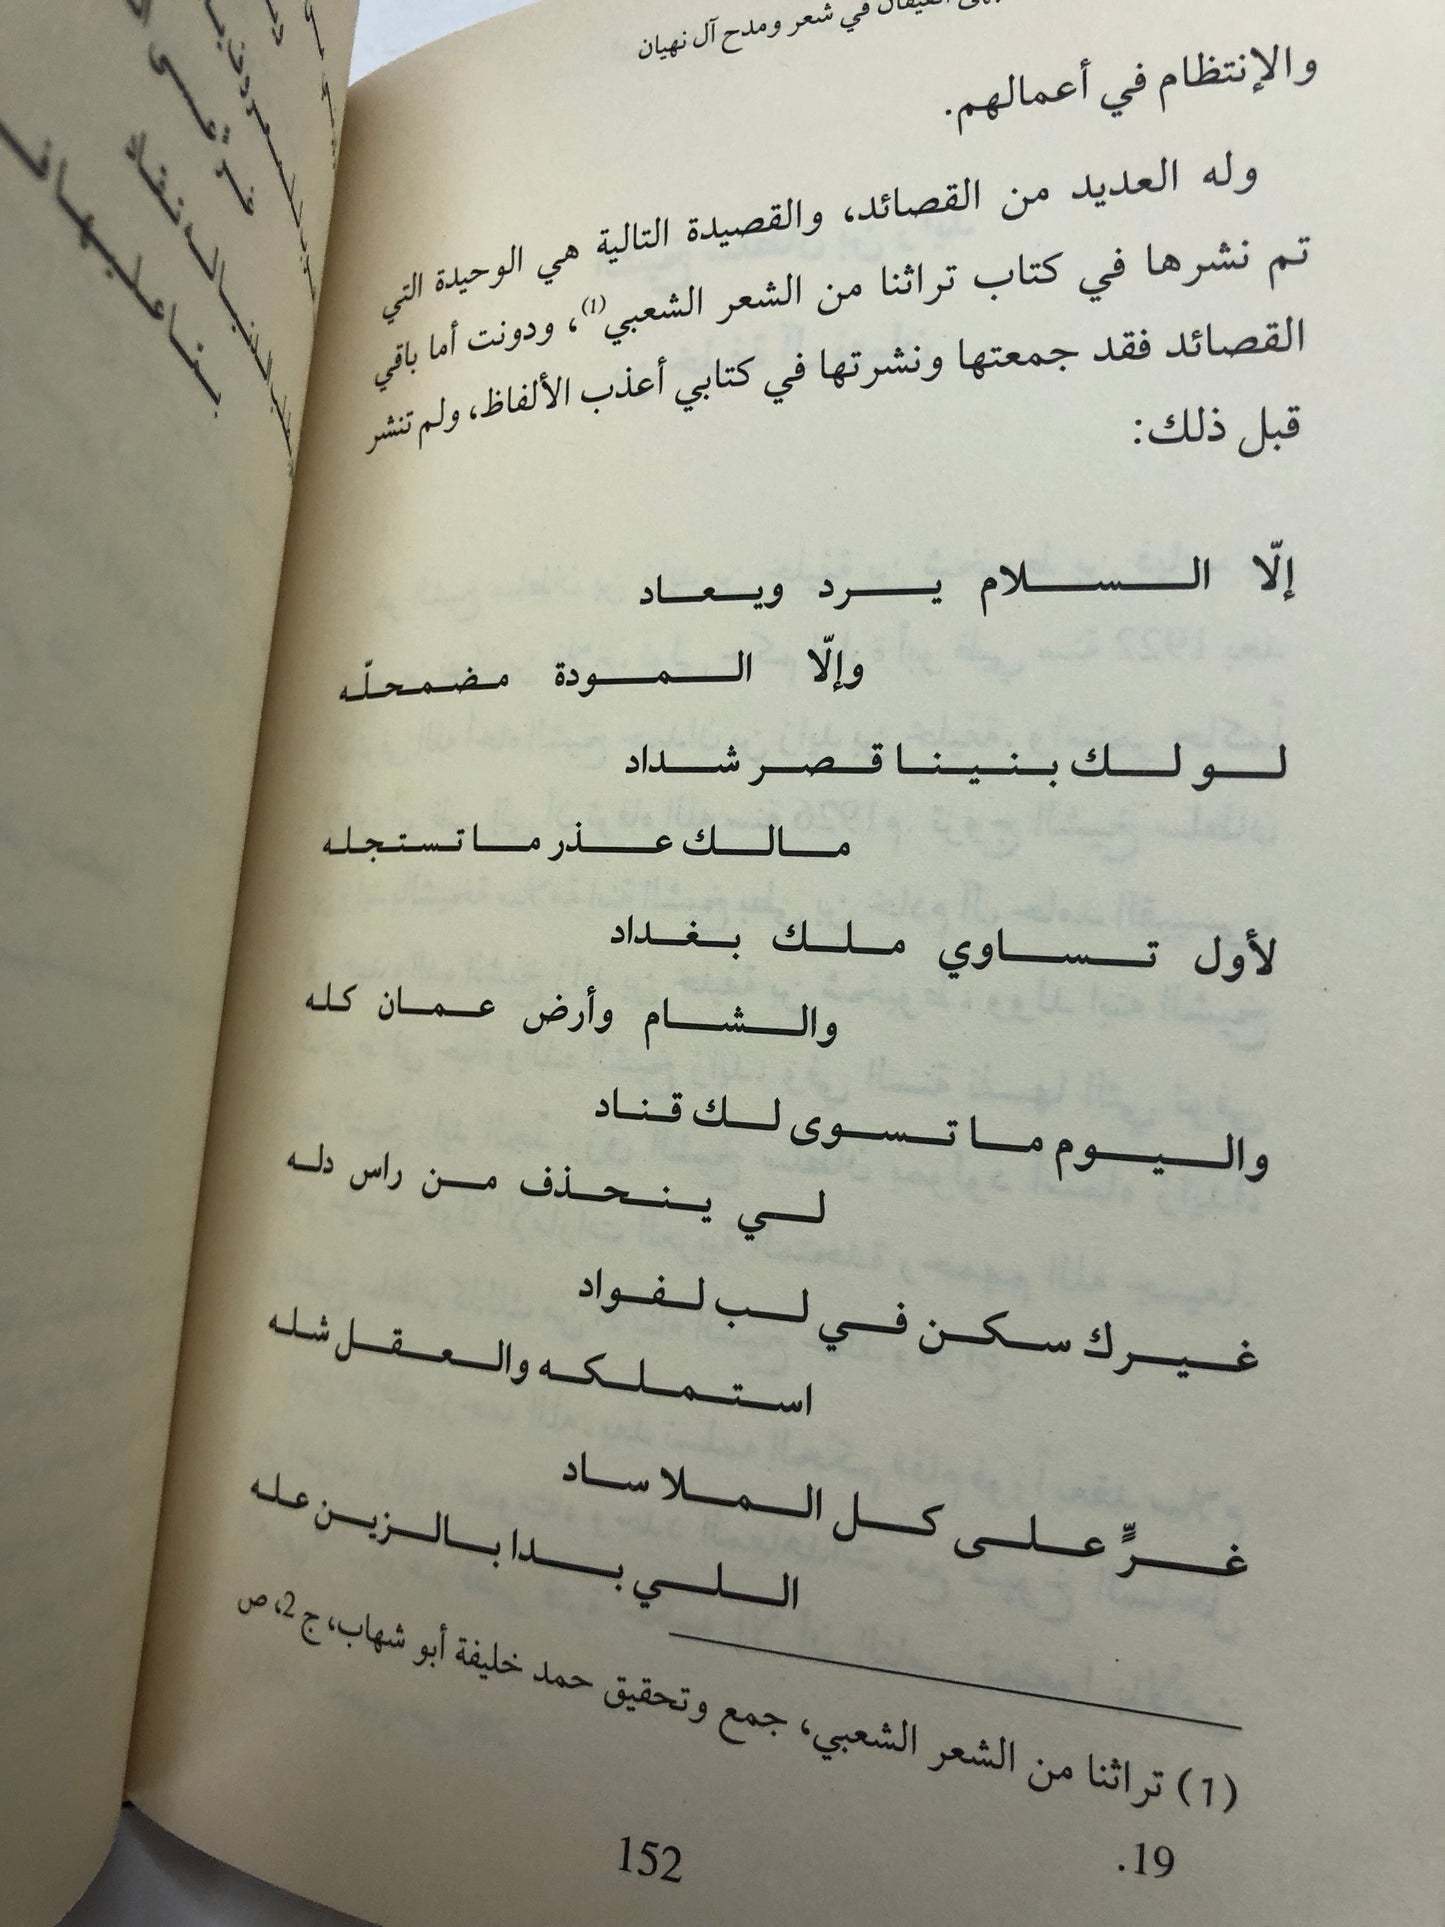 في شعر ومدح آل نهيان
والإنتظام في أعمالهم.
وله العديد من القصائد، والقصيدة التالية هي الوحيدة التي
تم نشرها في كتاب تراثنا من الشعر الشعبي(1)، ودونت أما باقي
القصائد فقد جمعتها ونشرتها في كتابي أعذب الألفاظ، ولم تنشر
قبل ذلك:
إلّا الـسـلام يـرد ويـعـاد
وإلّا الـمـودة مضمحلّه
لـو لـك بـنـيـنـا قـصـر شـداد
مـالـك عـذر مـا تـستـجلـه
لأول تـسـاوي مـلـك بـغـداد
والـشـام وأرض عـمـان كله
والـيـوم مـا تـسـوى لـك قـنـاد
لـي يـنـحـذف مـن راس دلـه
غـيـرك سـكـن فـي لـب لـفـواد
اسـتـمـلـكـه والـعـقـل شلـه
غـرٍّ عـلـى كـل الـمـلا سـاد
الـلـي بـدا بـالـزيـن عـلـه
(1) تراثنا من الشعر الشعبي، جمع وتحقيق حمد خليفة أبو شهاب، ج 2، ص
19.
152